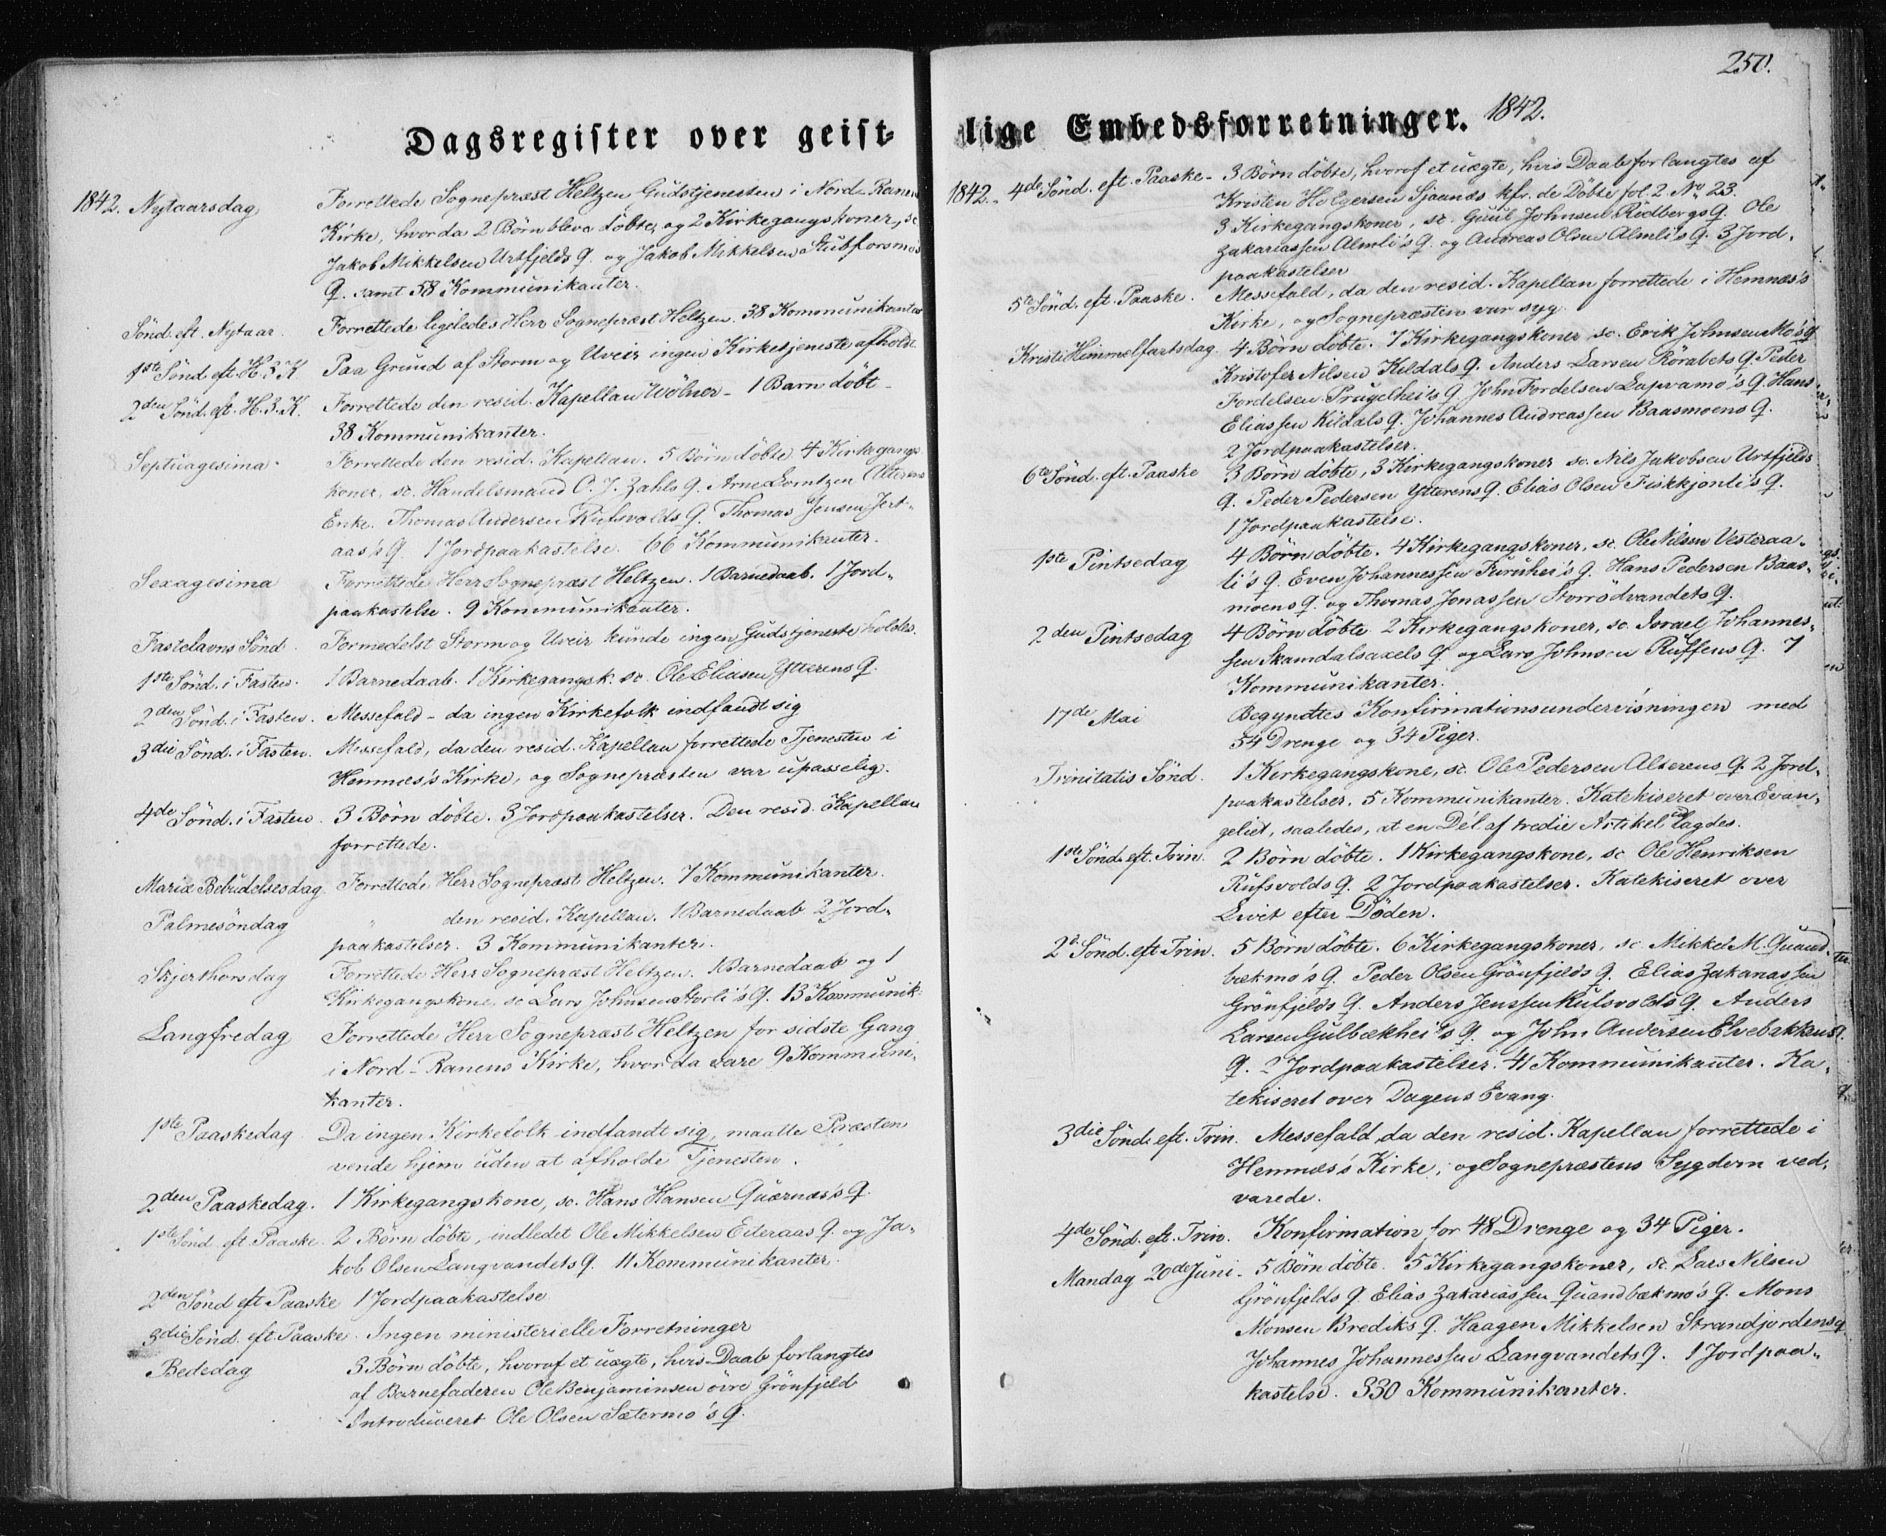 250.
Dagsregister over geist-
lige Embedsforretninger. 1842.
1842. Nytaarsdag, Forrettede Sognepræst Heltzen Gudstjenesten i Nord-Ranens
Kirke, hvorda 2 Børn bleve døbte, og 2 Kirkegangskoner, sc
Jakob Mikkelsen Urtfjelds Q. og Jakob Mikkelsen Stubforsmos
Q. samt 58 Kommunikanter.
Sönd. eft. Nytaar. Forrettede ligeledes Herr Sognepræst Heltzen. 38 Kommunikanter
1ste Sönd. eft. H.3.K. Paa Grund af Storm og Uveir ingen Kirketjeneste afholdt.
2den Sönd. eft. H.3.K. Forrettede den resid. Kapellan Wölner - 1 Barn döbt -
38 Kommunikanter.
Septuagesima. Forrettede den resid. Kapellan. 5 Börn döbte 4 Kirkegangs-
koner, sc. Handelsmand C. J. Zahls Q. Arne Lorntzen Alterens
Enke. Thomas Andersen Rufsvolds Q. Thomas Jensen Jert-
aas's Q. 1 Jordpaakastelse. 66 Kommunikanter.
Sexagesima Forrettede Herr Sognepræst Heltzen. 1 Barnedaab. 1 Jord-
paakastelse. 9 Kommunikanter.
Fastelavns Sönd. Formedelst Storm og Uveir kunde ingen Gudstjeneste holdes.
1ste Sönd. i Fasten. 1 Barnedaab. 1 Kirkegangsk. sc. Ole Eliasen Ytterens Q.
2den Sönd. i Fasten. Messefald - da ingen Kirkefolk indfandt sig
3die Sönd. i Fasten. Messefald, da den resid. Kapellan forrettede Tjenesten i
Hemnæs's Kirke, og Sognepræsten var upasselig.
4de Sönd. i Fasten. 3 Börn döbte. 3 Jordpaakastelser. Den resid. Kapellan
forrettede.
Mariæ Bebudelsesdag. Forrettede Herr Sognepræst Heltzen. 7 Kommunikanter.
Palmesöndag " den resid. Kapellan. 1 Barnedaab 2 Jord-
paakastelser. 3 Kommunikanter.
Skjerthorsdag Forrettede Herr Sognepræst Heltzen. 1 Barnedaab og 1
Kirkegangskone sc Lars Johnsen Storli's Q. 13 Kommunik.
Langfredag Forrettede Herr Sognepræst Heltzen for sidste Gang
i Nord-Ranens Kirke, hvor da vare 9 Kommuni-
kanter.
1ste Paaskedag Da ingen Kirkefolk indfandt sig, maatte Præsten
vende hjem uden at afholde Tjenesten.
2den Paaskedag. 1 Kirkegangskone, sc. Hans Hansen Quærnæs's Q.
1ste Sönd. eft. Paaske. 2 Börn döbte, indledet Ole Mikkelsen Eiteraas Q. og Ja-
kob Olsen Langvandets Q. 11 Kommunikanter.
2den Sönd eft Paaske 1 Jordpaakastelse
3die Sönd. eft. Paaske. Ingen ministerielle Forretninger
Bededag 3 Börn döbte, hvoraf et uægte, hvis Daab forlangtes
af Barnefaderen Ole Benjaminsen övre Grönfjeld
Introduceret Ole Olsen Sætermo's Q.
1842. 4de Sönd. eft. Paaske - 3 Börn döbte, hvoraf et uægte, hvis Daab forlangtes af
Kristen Holgersen Sjaunds kfr. de Döbte fol. 2 No 23.
3 Kirkegangskoner, sc. Guul Johnsen Rödbergs Q. Ole
Zakariassen Almli's Q. og Andreas Olsen Almli's Q. 3 Jord-
paakastelser
5te Sönd. eft. Paaske. Messefald, da den resid. Kapellan forrettede i Hemnæs's
Kirke, og Sognepræsten var syg.
Kristi Himmelfartsdag. 4 Börn döbte. 7 Kirkegangskoner sc. Erik Johnsen Mo's Q
Kristofer Nilsen Kildals Q. Anders Larsen Rörabets Q. Peder
Fordelsen Prugelhei's Q. John Fordelsen Lapvamo's Q. Hans
Eliassen Kildals Q. Johannes Andreassen Baasmoens Q.
2 Jordpaakastelser.
6te Sönd. eft. Paaske 3 Börn döbte, 3 Kirkegangskoner sc. Nils Jakobsen Urtfjelds
Q. Peder Pedersen Ytterens Q. Elias Olsen Fiskkjönli's Q.
1 Jordpaakastelse.
1ste Pintsedag 4 Börn döbte. 4 Kirkegangskoner, sc. Ole Nilsen Vesteraa-
li's Q. Even Johannessen Furuhei's Q. Hans Pedersen Baas-
moens Q. og Thomas Jonassen Storrödvandets Q.
2den Pintsedag 4 Börn döbte 2 Kirkegangskoner, sc. Israel Johannes-
sen Skamdalsaxels Q. og Lars Johnsen Ruffens Q. 7
Kommunikanter.
17de Mai Begyndtes Konfirmationsundervisningen med
54 Drenge og 34 Piger.
Trinitatis Sönd. 1 Kirkegangskone, sc. Ole Pedersen Alterens Q. 2 Jord-
paakastelser. 5 Kommunikanter. Katekiseret over Evan-
geliet, saaledes, at en Del af tredie Artikel toges.
1ste Sönd. eft. Trin. 2 Börn döbte. 1 Kirkegangskone, sc Ole Henriksen
Rufsvolds Q. 2 Jordpaakastelser. Katekiseret over
Livet efter Döden.
2d. Sönd. eft. Trin. 5 Börn döbte. 6 Kirkegangskoner, sc Mikkel M. Quand-
bækmo's Q. Peder Olsen Grönfjelds Q. Elias Zakariassen
Grönfjelds Q. Anders Jenssen Rufsvolds Q. Anders
Larsen Gulbækhei's Q. og John Andersen Elvebakkens
Q. 2 Jordpaakastelser. 41 Kommunikanter. Ka-
tekiseret over Dagens Evang.
3die Sönd. eft. Trin. Messefald da den resid. Kapellan forrettede i
Hemnæs's Kirke, og Sognepræstens Sygdom ved-
varede.
4de Sönd. eft. Trin. Konfirmation for 48 Drenge og 34 Piger.
Mandag 20de Juni. 5 Börn döbte. 5 Kirkegangskoner, sc Lars Nilsen
Grönfjelds Q. Elias Zakariassen Quandbækmo's Q. Mons
Monsen Brediks Q. Haagen Mikkelsen Strandjordens Q
Johannes Johannessen Langvandets Q. 1 Jordpaa-
kastelse. 330 Kommunikanter.